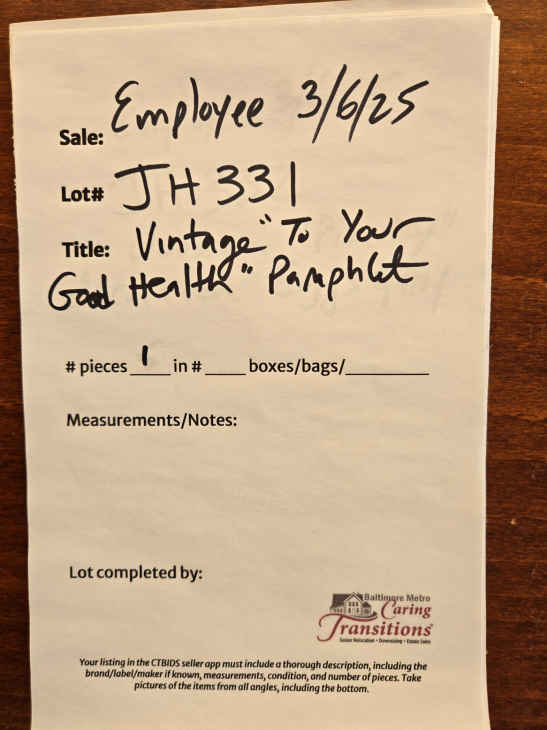 Sale: Employee 3/6/25
Lot# JH 331
Title: Vintage "To Your
Good Health" Pamphlet
# pieces 1 in # ____ boxes/bags/________
Measurements/Notes:
Lot completed by:
Baltimore Metro
Caring
Transitions
Senior Relocation • Downsizing • Estate Sales
Your listing in the CTBIDS seller app must include a thorough description, including the
brand/label/maker if known, measurements, condition, and number of pieces. Take
pictures of the items from all angles, including the bottom.